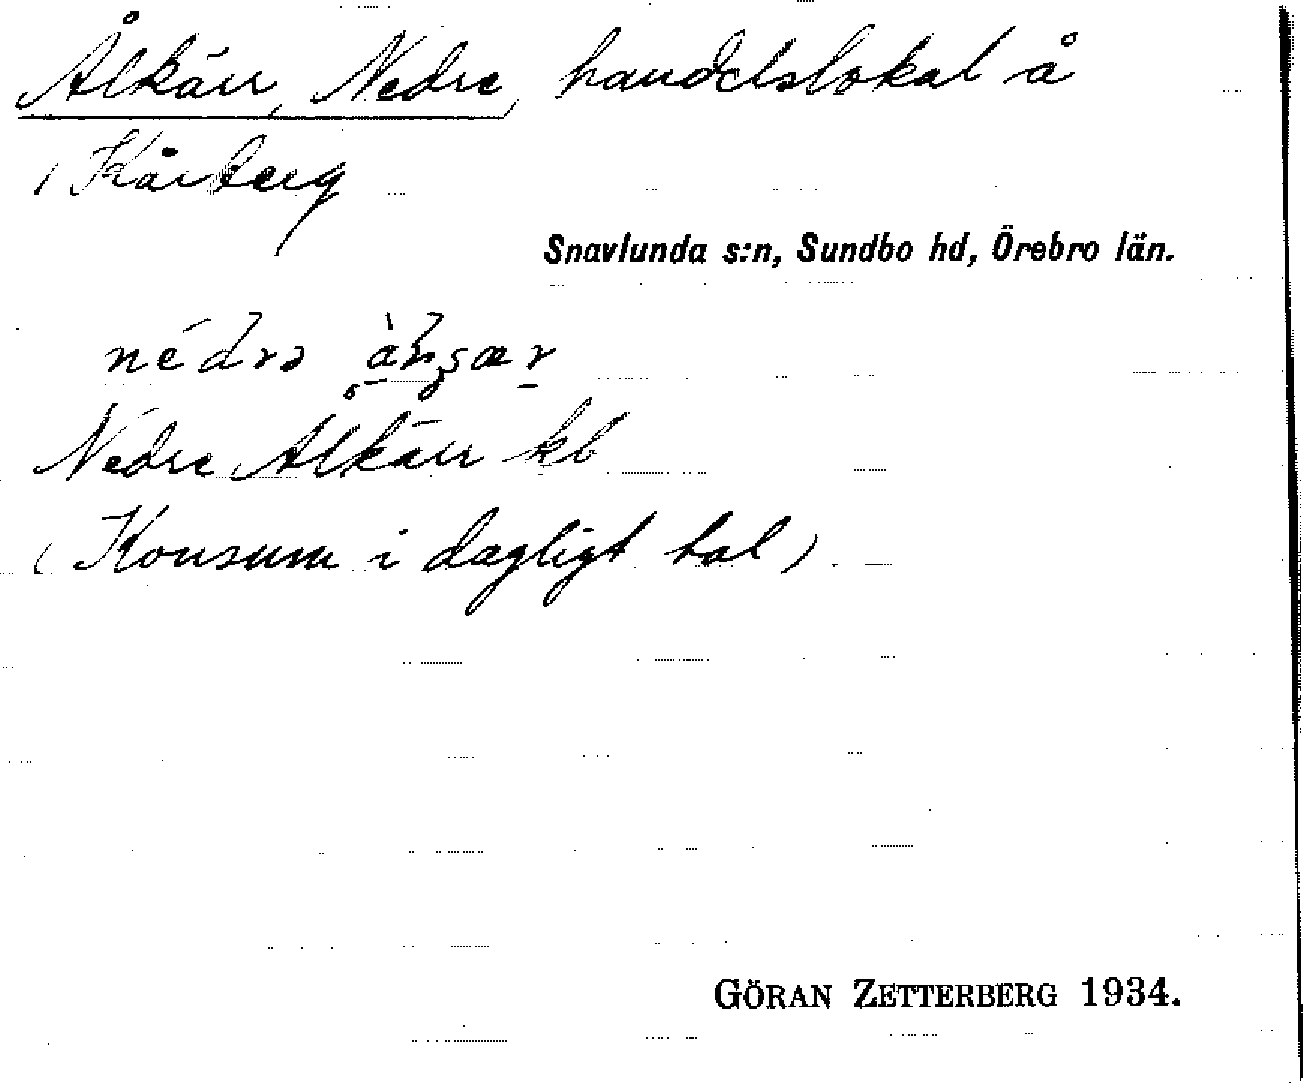 Ålkärr, Nedre, handelslokal å
Kårberg
Snavlunda s:n, Sundbo hd, Örebro län.
Nedre Alkärr kb
(Konsum i dagligt tal)
GÖRAN ZETTERBERG 1934.